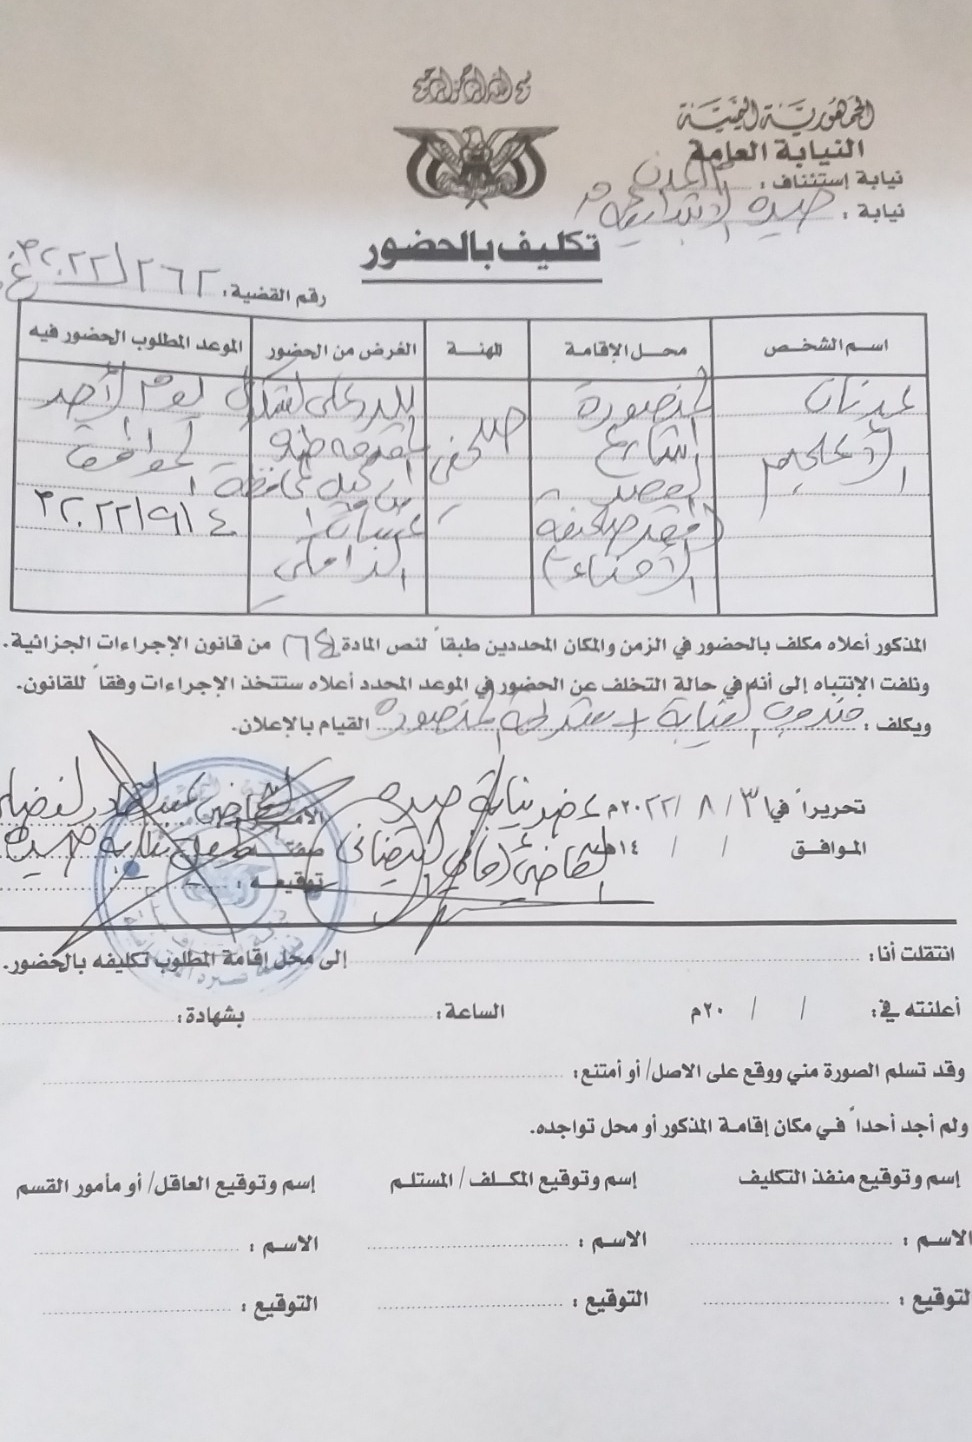 بسم الله الرحمن الرحيم
الجمهورية اليمنية
النيابة العامة
نيابة إستئناف : م/عدن
نيابة : صيره الابتدائية
تكليف بالحضور
رقم القضية : ٢٦٢/٢٠٢٢م
اسم الشخص
محل الإقامة
المهنة
الغرض من الحضور
الموعد المطلوب الحضور فيه
عدنان الأعجم
المنصورة الشارع
صحفي
للرد على الشكوى المقدمة ضده من وكيل محافظة
يوم الأحد الموافق
٤/٩/٢٠٢٢م
المذكور أعلاه مكلف بالحضور في الزمن والمكان المحددين طبقاً لنص المادة (٦٤) من قانون الإجراءات الجزائية.
ونلفت الإنتباه إلى أنه في حالة التخلف عن الحضور في الموعد المحدد أعلاه ستتخذ الإجراءات وفقاً للقانون.
ويكلف : مندوب النيابة + شرطة المنصورة القيام بالإعلان.
تحريراً في ٣١/ ٨ /٢٠٢٢م عضو نيابة صيره
الاسم : القاضي
الموافق / / ١٤هـ القاضي
صفته : وكيل نيابة صيرة
توقيعه :
انتقلت أنا : إلى محل إقامة المطلوب تكليفه بالحضور.
أعلنته في : / / ٢٠م الساعة : بشهادة :
وقد تسلم الصورة مني ووقع على الاصل/ أو أمتنع :
ولم أجد أحداً في مكان إقامة المذكور أو محل تواجده.
إسم وتوقيع منفذ التكليف إسم وتوقيع المكلف / المستلم إسم وتوقيع العاقل/ أو مأمور القسم
الاسم : الاسم : الاسم :
التوقيع : التوقيع : التوقيع :